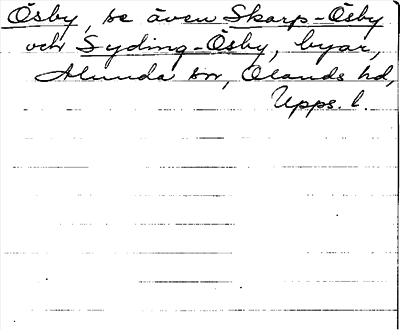 Ösby, se även Skarp-Ösby
och Syding-Ösby, byar,
Alunda sn, Olands hd,
Upps. l.